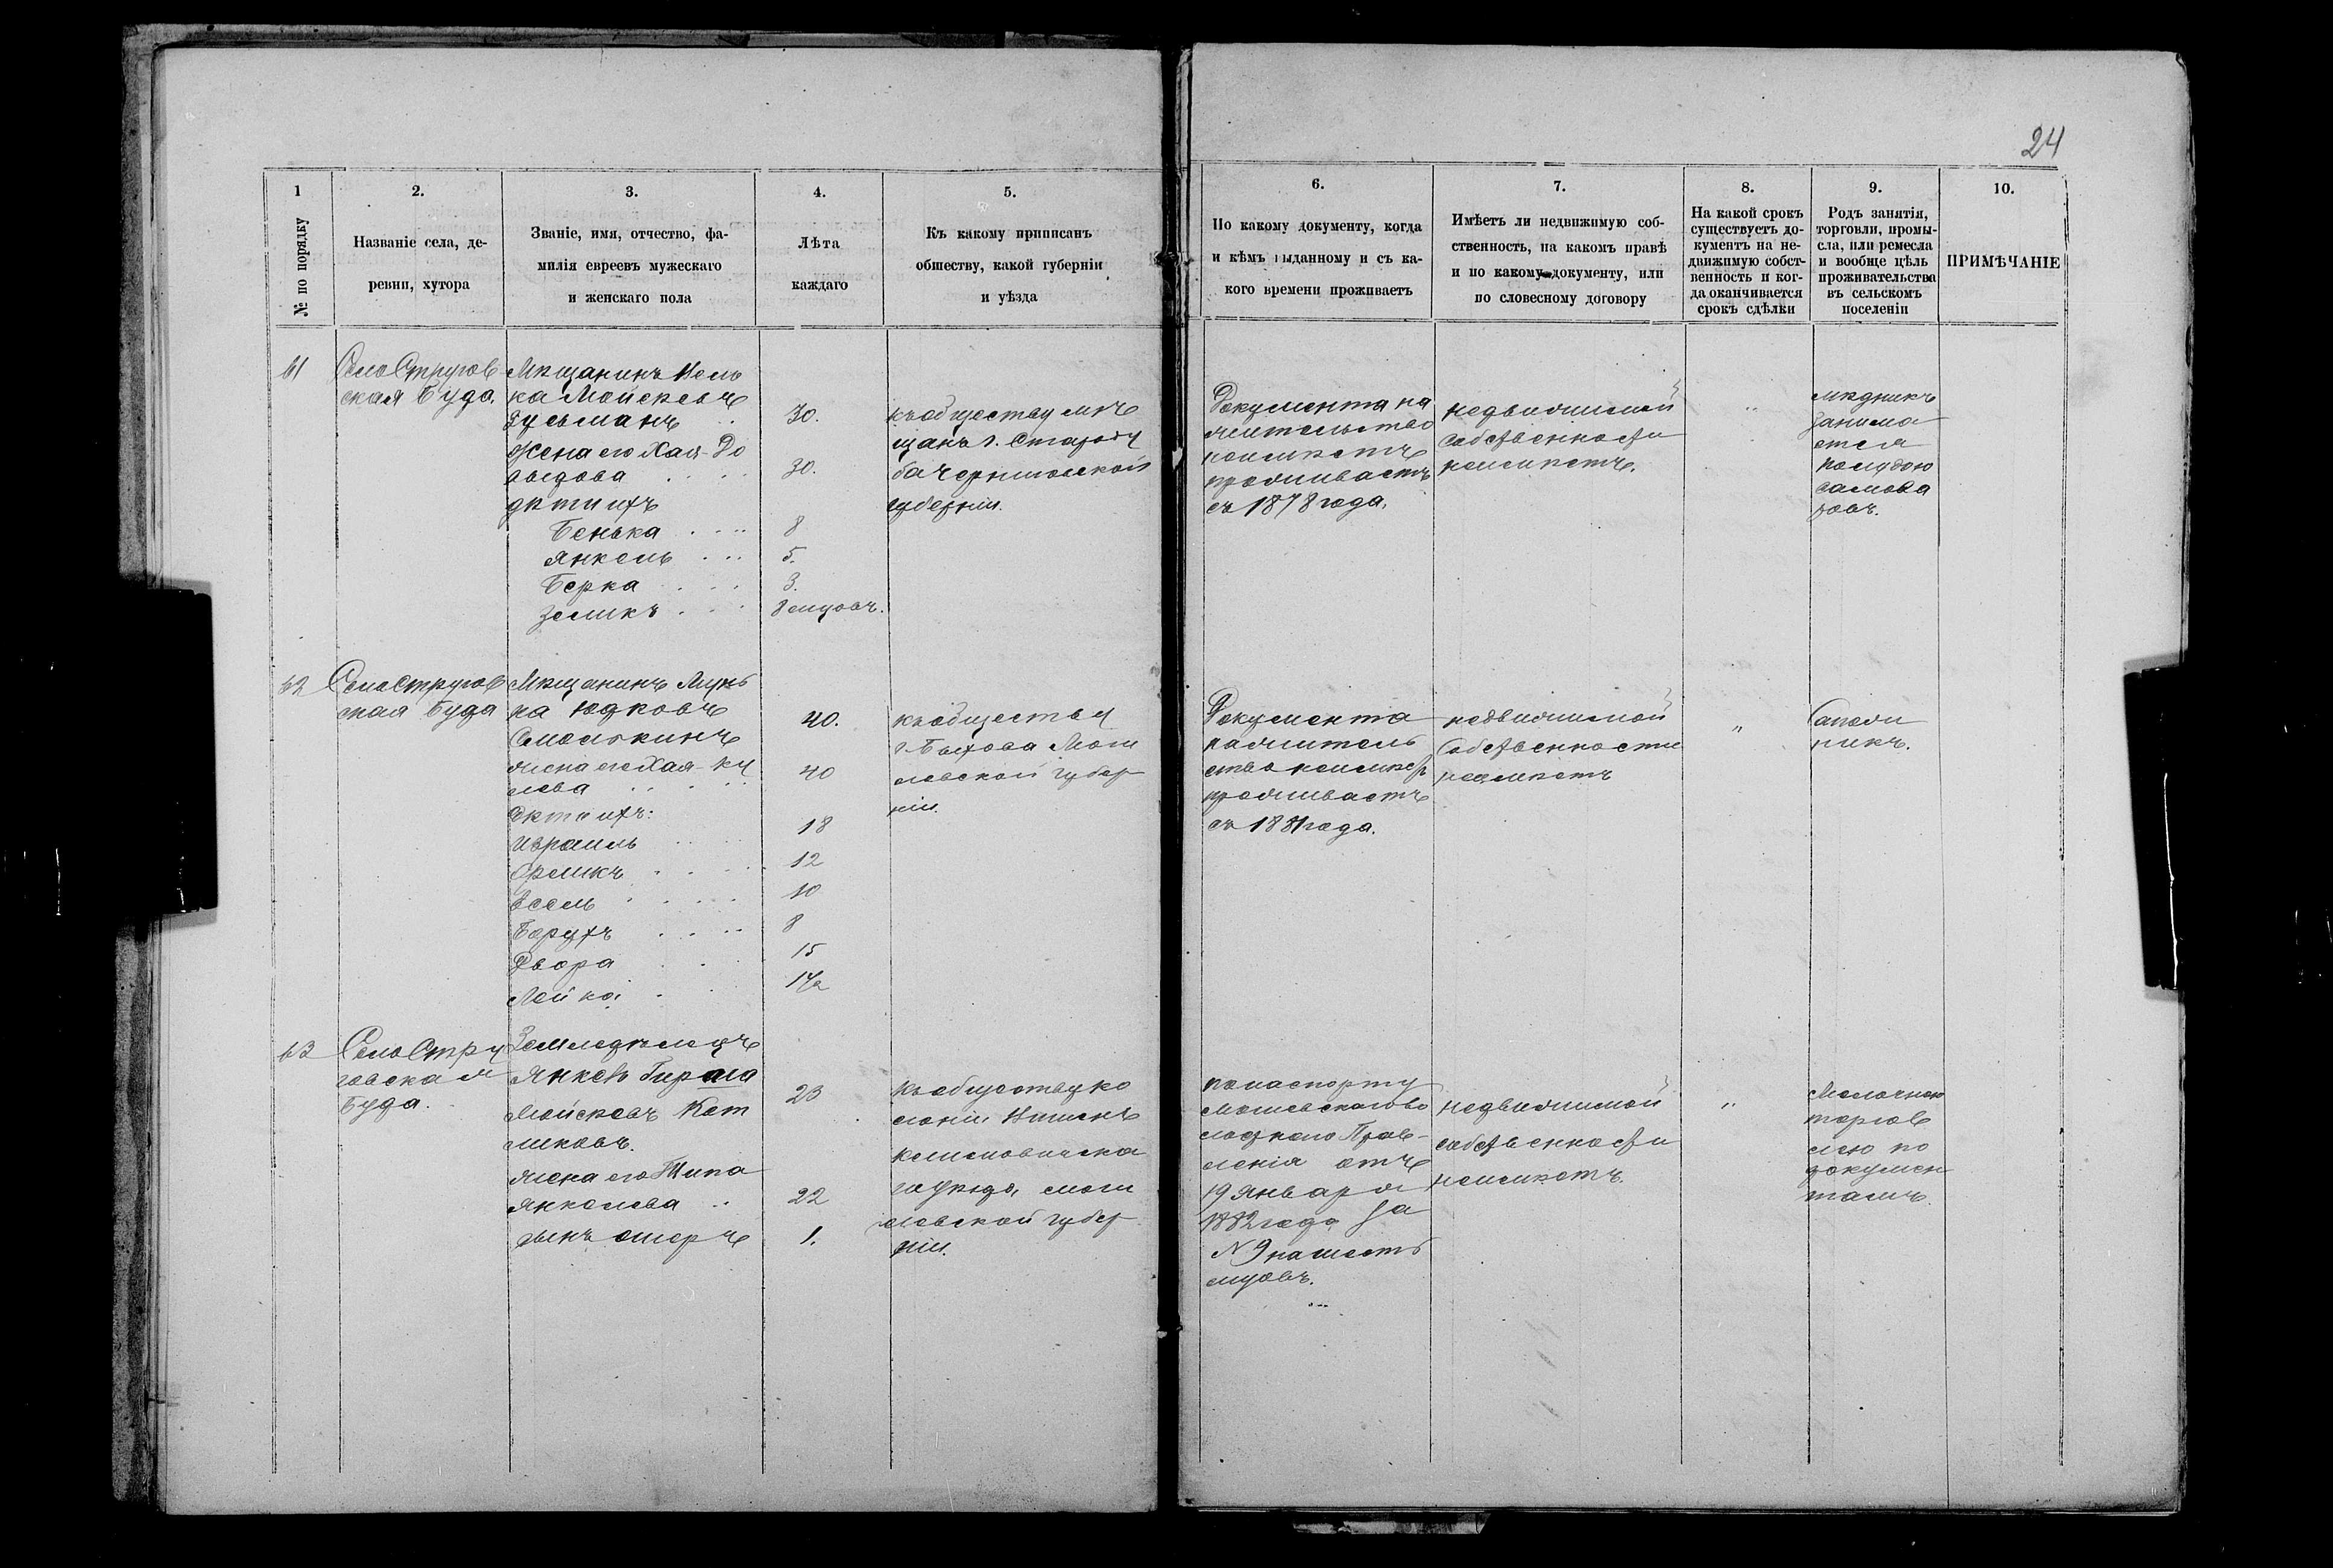 24
1
№ по порядку
2.
Названіе села, де-
ревни, хутора
3.
Званіе, имя, отчество, фа-
милія евреевъ мужескаго
и женскаго пола
4.
Лѣта
каждаго
5.
Къ какому приписанъ
обществу, какой губерніи
и уѣзда
6.
По какому документу, когда
и кѣмъ выданному и съ ка-
кого времени проживаетъ
7.
Имѣетъ ли недвижимую соб-
ственность, на какомъ правѣ
и по какому документу, или
по словесному договору
8.
На какой срокъ
существуетъ до-
кументъ на не-
движимую собст-
венность и ког-
да оканчивается
срокъ сдѣлки
9.
Родъ занятія,
торговли, промы-
сла, или ремесла
и вообще цѣль
проживательства
въ сельскомъ
поселеніи
10.
ПРИМѢЧАНІЕ
61
Село Стругов
ская Буда.
Мѣщанинъ
ка Мойсеевъ
Гусьманъ
жена его Хая-До
выдова
дѣти ихъ
Бенька
Янкель
Берка
Зеликъ
30.
30.
8
5.
3.
8 мѣцовъ.
къ обществу мѣ
щанъ г. Староду
ба Черниговской
губерніи.
Документа на
жительство
неимѣетъ
проживаетъ
съ 1878 года.
недвижимой
собственности
неимѣетъ.
"
мѣдникъ
занима
ется
полудою
самова
ровъ.
62
Село Стругов
ская Буда
Мѣщанинъ
ка Юдковъ
Смолкинъ
жена его Хая-
лева
Дѣти ихъ:
Израиль
Орликъ
Есель
Борухъ
Двора
Лейка
40.
40
18
12
10
8
15
1½
къ обществу
г. Быхова Моги
левской губер
ніи.
Документа
на житель
ство неимѣет
проживаетъ
съ 1881 года.
недвижимой
собственности
неимѣетъ
"
Сапож
никъ.
63
Село Стру
говская
Буда.
Земледѣлецъ
Янкевъ
Мойсеевъ Кот
ликовъ.
жена его Шипа
Янкелева
сынъ
23
22
1.
къ обществу ко
лоніи
Климовичска
го уѣзда, моги
левской губер
ніи.
по паспорту
во
лостнаго Прав-
ленія отъ
19 Января
1882 года за
N 9 на шесть
мцовъ.
недвижимой
собственности
неимѣетъ.
"
Молочною
торгов
лею по
докумен
тамъ.